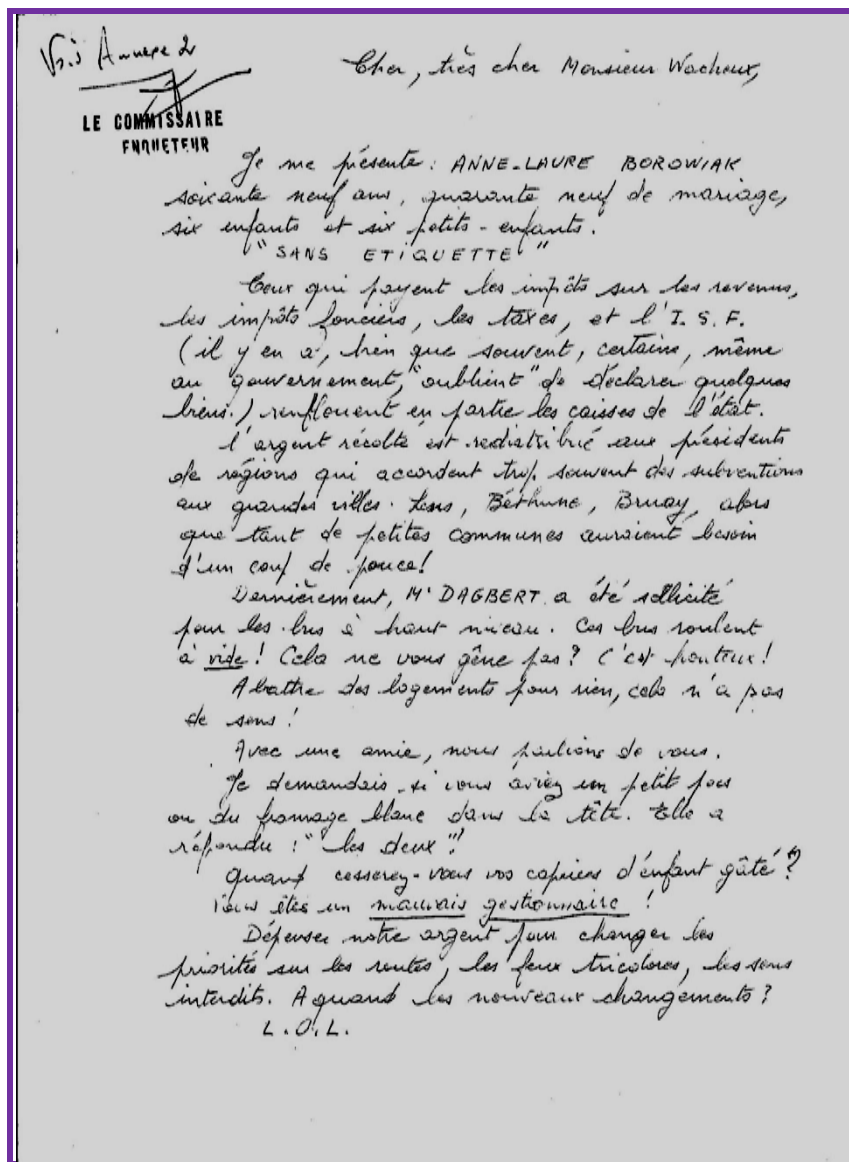 Vois Annexe 2
LE COMMISSAIRE
ENQUETEUR
Cher, très cher Monsieur Wacheux,
Je me présente : ANNE-LAURE BOROWIAK
soixante neuf ans, quarante neuf de mariage,
six enfants et six petits-enfants.
"SANS ETIQUETTE"
Ceux qui payent les impôts sur les revenus,
les impôts fonciers, les taxes, et l'I.S.F.
(il y en a, bien que souvent, certains, même
au gouvernement, "oublient" de déclarer quelques
biens.) renflouent en partie les caisses de l'état.
l'argent récolté est redistribué aux présidents
de régions qui accordent trop souvent des subventions
aux grandes villes. Lens, Béthune, Bruay, alors
que tant de petites communes auraient besoin
d'un coup de pouce!
Dernièrement, Mr DAGBERT a été sollicité
pour les bus à haut niveau. Ces bus roulent
à vide! Cela ne vous gêne pas? C'est honteux!
Abattre des logements pour rien, cela n'a pas
de sens!
Avec une amie, nous parlions de vous.
Je demandais si vous aviez un petit pois
ou du fromage blanc dans la tête. Elle a
répondu : "les deux"!
Quand cesserez-vous vos caprices d'enfant gâté?
Vous êtes un mauvais gestionnaire!
Dépenser notre argent pour changer les
priorités sur les routes, les feux tricolores, les sens
interdits. A quand les nouveaux changements?
L.O.L.